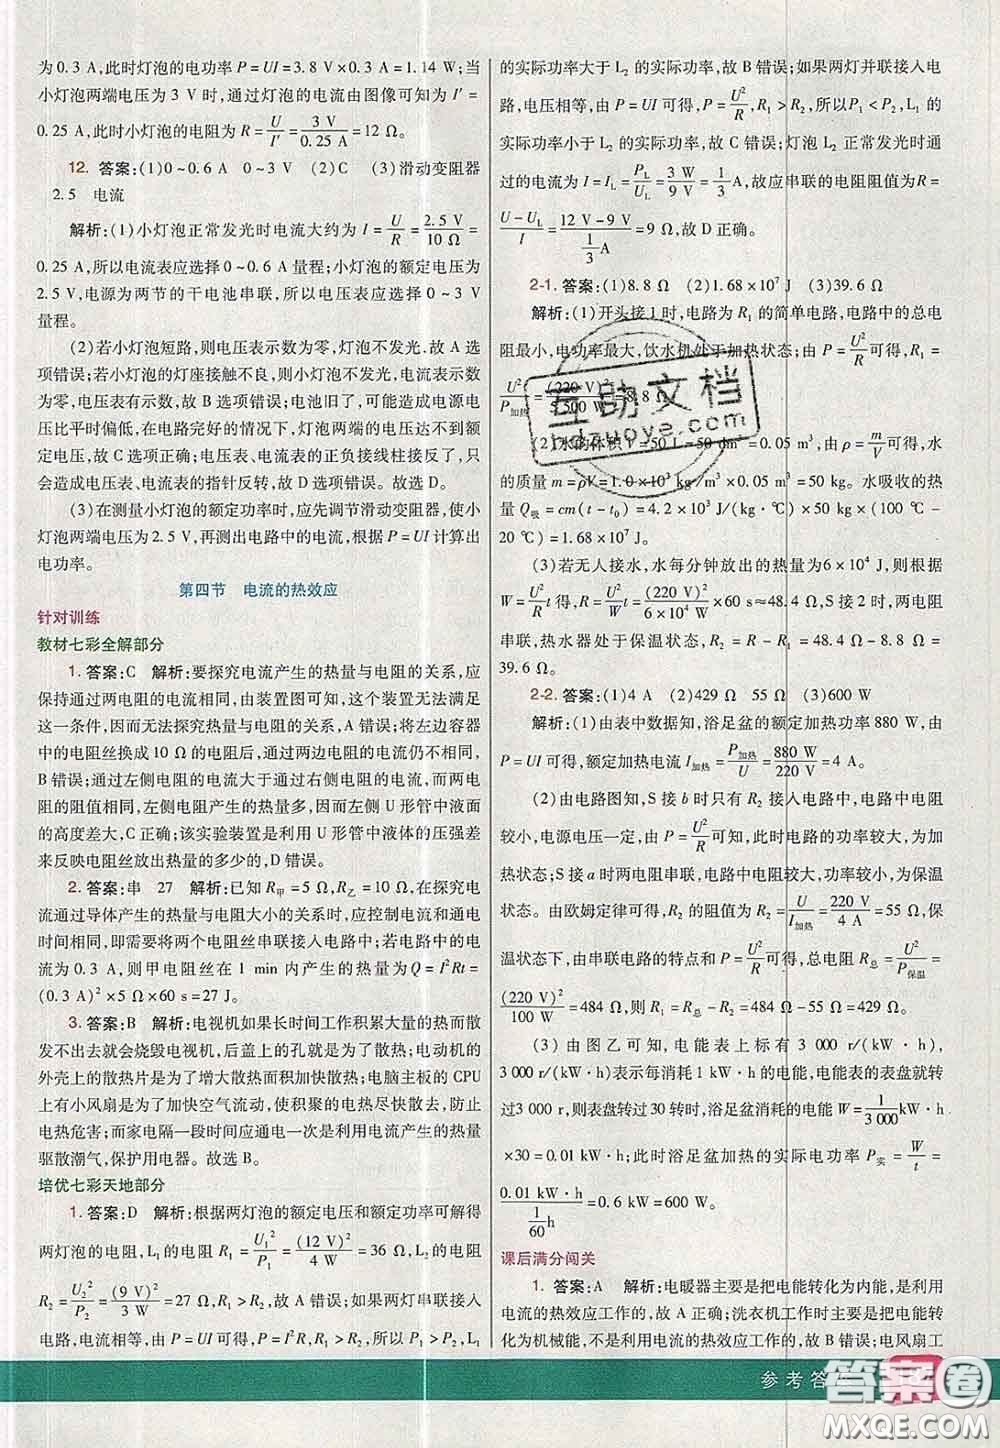 为 0.3 A,此时灯泡的电功率 P = UI = 3.8 V×0.3 A = 1.14 W;当
小灯泡两端电压为 3 V 时,通过灯泡的电流由图像可知为 I′ =
0.25 A,此时小灯泡的电阻为 R = U/I′ = 3 V/0.25 A = 12 Ω。
12. 答案:(1)0~0.6 A 0~3 V (2)C (3)滑动变阻器
2.5 电流
解析:(1)小灯泡正常发光时电流大约为 I = U/R = 2.5 V/10 Ω =
0.25 A,所以电流表应选择 0~0.6 A 量程;小灯泡的额定电压为
2.5 V,电源为两节的干电池串联,所以电压表应选择 0~3 V
量程。
(2)若小灯泡短路,则电压表示数为零,灯泡不发光.故 A 选
项错误;若小灯泡的灯座接触不良,则小灯泡不发光,电流表示
数为零,故 B 选项错误;电池旧了,可能造成电源电
压比平时偏低,在电路完好的情况下,灯泡两端的电压达不到额
定电压,故 C 选项正确;电压表、电流表的正负接线柱接反了,只
会造成电压表、电流表的指针反转,故 D 选项错误。故选 D。
(3)在测量小灯泡的额定功率时,应先调节滑动变阻器,使小
灯泡两端电压为 2.5 V,再测出电路中的电流,根据 P = UI 计算出
电功率。
第四节 电流的热效应
针对训练
教材七彩全解部分
1. 答案:C 解析:要探究电流产生的热量与电阻的关系,应
保持通过两电阻的电流相同,由装置图可知,这个装置无法满足
这一条件,因而无法探究热量与电阻的关系,A 错误;将左边容器
中的电阻丝换成 10 Ω 的电阻后,通过两边电阻的电流仍不相同,
B 错误;通过左侧电阻的电流大于通过右侧电阻的电流,而两电
阻的阻值相同,左侧电阻产生的热量多,因而左侧 U 形管中液面
的高度差大,C 正确;该实验装置是利用 U 形管中液体的压强差
来反映电阻丝放出热量的多少的,D 错误。
2. 答案:串 27 解析:已知 R甲 = 5 Ω,R乙 = 10 Ω,在探究电
流通过导体产生的热量与电阻大小的关系时,应控制电流和通电
时间相同,即需要将两个电阻丝串联接入电路中;若电路中电流
为 0.3 A,则甲电阻丝在 1 min 内产生的热量为 Q = I²Rt =
(0.3 A)²×5 Ω×60 s = 27 J。
3. 答案:B 解析:电视机如果长时间工作积累大量的热而散
发不出去就会烧毁电视机,后盖上的孔就是为了散热;电动机的
外壳上的散热片是为了增大散热面积加快散热;电脑主板的 CPU
上有小风扇是为了加快空气流动,使积聚的电热尽快散去,防止
电热危害;而家电隔一段时间应通电一次是利用电流产生的热量
驱散潮气,保护用电器。故选 B。
培优七彩天地部分
1. 答案:D 解析:根据两灯泡的额定电压和额定功率可解得
两灯泡的电阻,L₁ 的电阻 R₁ = U₁²/P₁ = (12 V)²/4 W = 36 Ω,L₂ 的电阻
R₂ = U₂²/P₂ = (9 V)²/3 W = 27 Ω,故 A 错误;如果两灯串联接入
电路,电流相等,由 P = UI 可得,P = I²R,R₁ > R₂,所以 P₁ > P₂,L₁
的实际功率大于 L₂ 的实际功率,故 B 错误;如果两灯并联接入电
路,电压相等,由 P = UI 可得,P = U²/R,R₁ > R₂,所以P₁ < P₂,L₁ 的
实际功率小于 L₂ 的实际功率,故 C 错误;灯泡 L₂ 正常发光时通
过的电流为 I = I_L = P_L/U_L = 3 W/9 V = 1/3 A,故应串联的电阻阻值为R =
(U − U_L)/I = (12 V − 9 V)/(1/3 A) = 9 Ω,故 D 正确。
2-1. 答案:(1)8.8 Ω (2)1.68×10⁷ J (3)39.6 Ω
解析:(1)开关接 1 时,电路为 R₁ 的简单电路,电路中的总电
阻最小,电功率最大,饮水机处于加热状态;由 P = U²/R 可得,R₁ =
U²/P加热 = (220 V)²/5 500 W = 8.8 Ω
(2)水的体积 V = 50 L = 50 dm³ = 0.05 m³,由 ρ = m/V 可得,水
的质量 m = ρV = 1.0×10³ kg/m³×0.05 m³ = 50 kg。水吸收的热
量 Q吸 = cm(t − t₀) = 4.2×10³ J/(kg·℃)×50 kg×(100 ℃ −
20 ℃) = 1.68×10⁷ J。
(3)若无人接水,水每分钟散失的热量为 6×10⁴ J,则根据
W = U²/R t 得,R = U²/W t = (220 V)²/6×10⁴ J ×60 s ≈ 48.4 Ω,S 接 2 时,两电阻
串联,热水器处于保温状态,R₂ = R − R₁ = 48.4 Ω − 8.8 Ω =
39.6 Ω。
2-2. 答案:(1)4 A (2)429 Ω 55 Ω (3)600 W
解析:(1)由表中数据知,浴足盆的额定加热功率 880 W,由
P = UI 可得,额定加热电流 I加热 = P加热/U = 880 W/220 V = 4 A。
(2)由电路图知,S 接 b 时只有 R₂ 接入电路中,电路中电阻
较小,电源电压一定,由 P = U²/R 可知,此时电路的功率较大,为加
热状态;S 接 a 时两电阻串联,电路中电阻较大,功率较小,为保温
状态。由欧姆定律可得,R₂ 的阻值为 R₂ = U/I加热 = 220 V/4 A = 55 Ω,保
温状态下,由串联电路的特点和 P = U²/R 可得,总电阻 R总 = U²/P保温 =
(220 V)²/100 W = 484 Ω,则 R₁ = R总 − R₂ = 484 Ω − 55 Ω = 429 Ω。
(3)由图乙可知,电能表上标有 3 000 r/(kW·h),
3 000 r/(kW·h)表示每消耗 1 kW·h 的电能,电能表的表盘就转
过 3 000 r,则表盘转过 30 转时,浴足盆消耗的电能 W = 1/3 000 kW·h
×30 = 0.01 kW·h;此时浴足盆加热的实际电功率 P实 = W/t =
0.01 kW·h/(1/60 h) = 0.6 kW = 600 W。
课后满分闯关
1. 答案:A 解析:电暖器主要是把电能转化为内能,是利用
电流的热效应工作的,故 A 正确;洗衣机工作时主要是把电能转
化为机械能,不是利用电流的热效应工作的,故 B 错误;电风扇工
互助文档
hdzuoye.com
参考答
答案圈
MXQE.COM